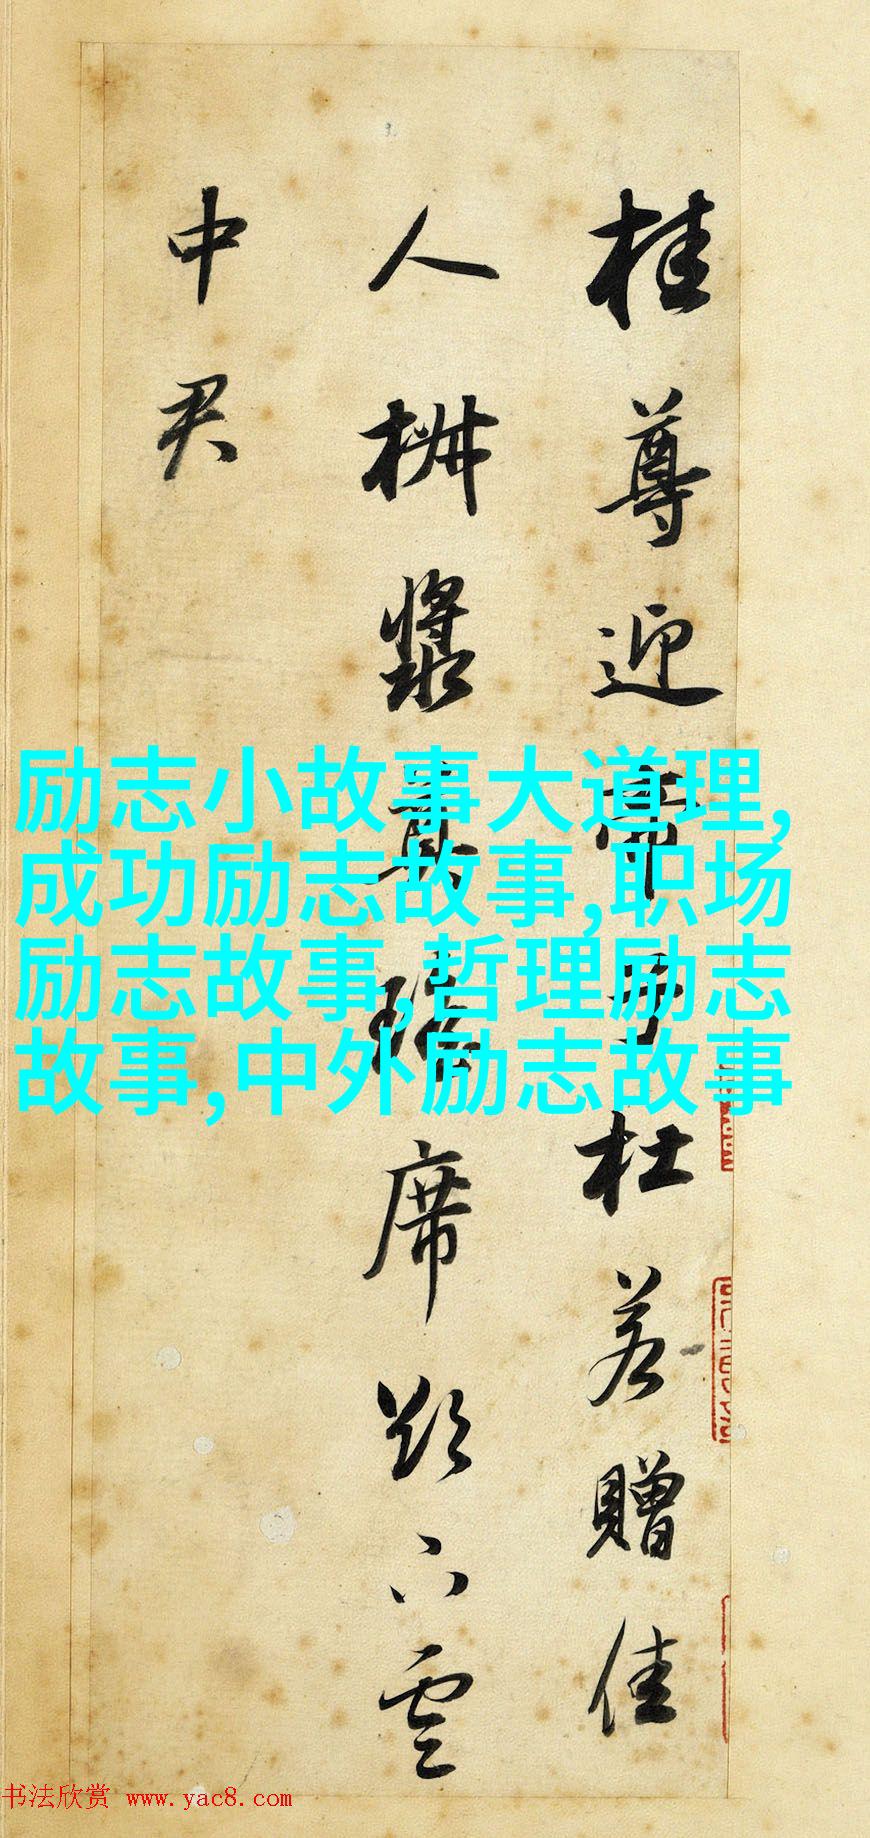 桂尊迎帝子杜若贈佳
人椒漿奠瑤席欲下雲
中君
励志小故事大道理,
成功励志故事,职场
励志故事,哲理励志
故事,中外励志故事
书法欣赏 www.yac8.com